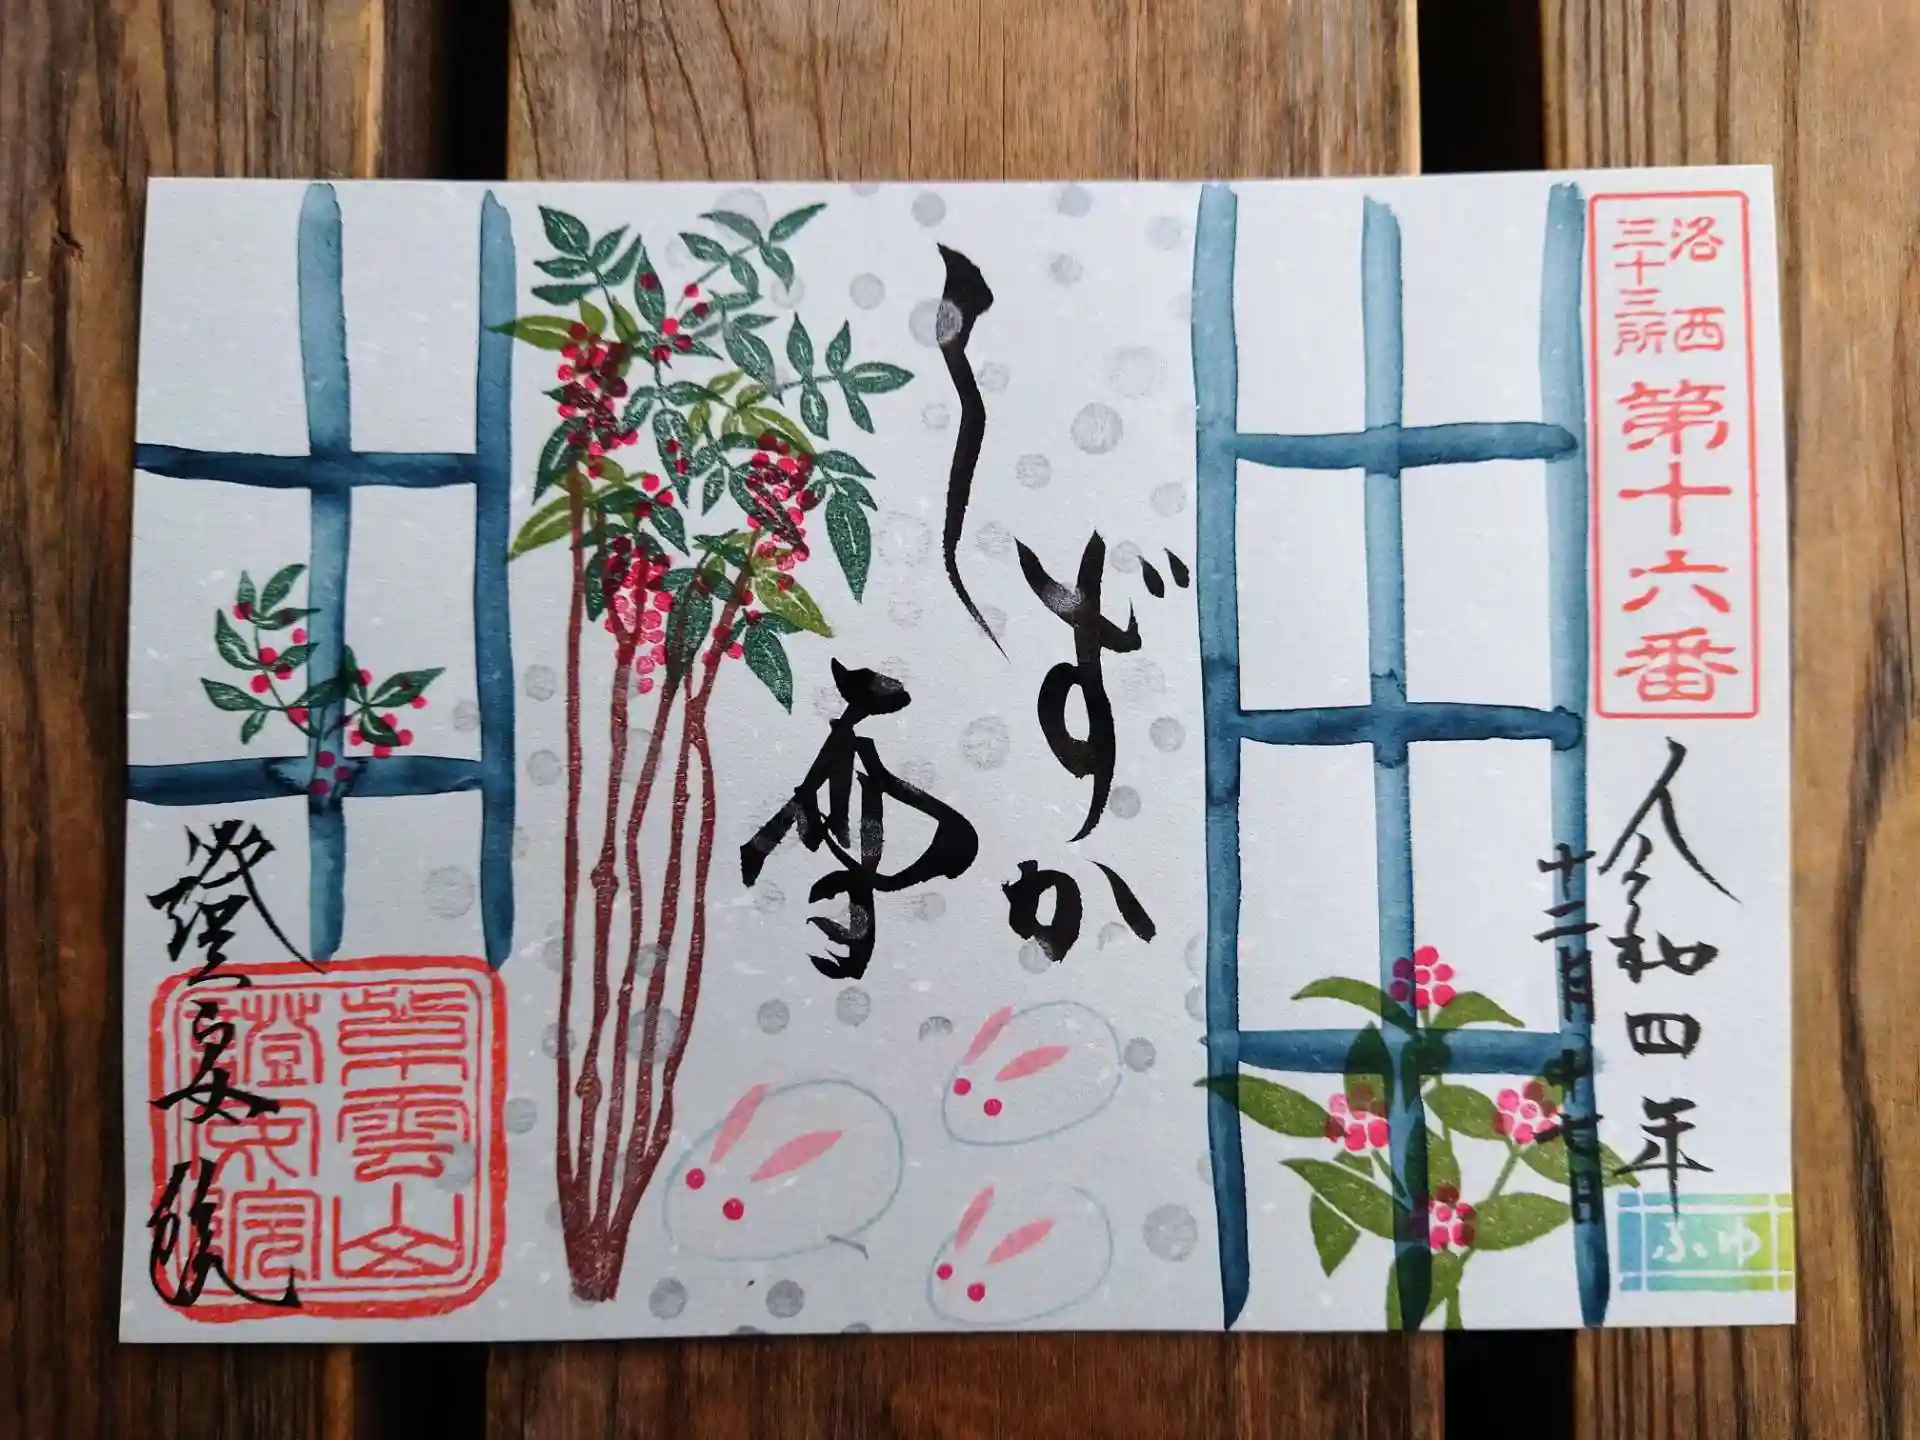 洛西
三十三所
第十六番
令和四年
十二月十七日
ふゆ
しずか
雪
證安院
紫雲山
證安院